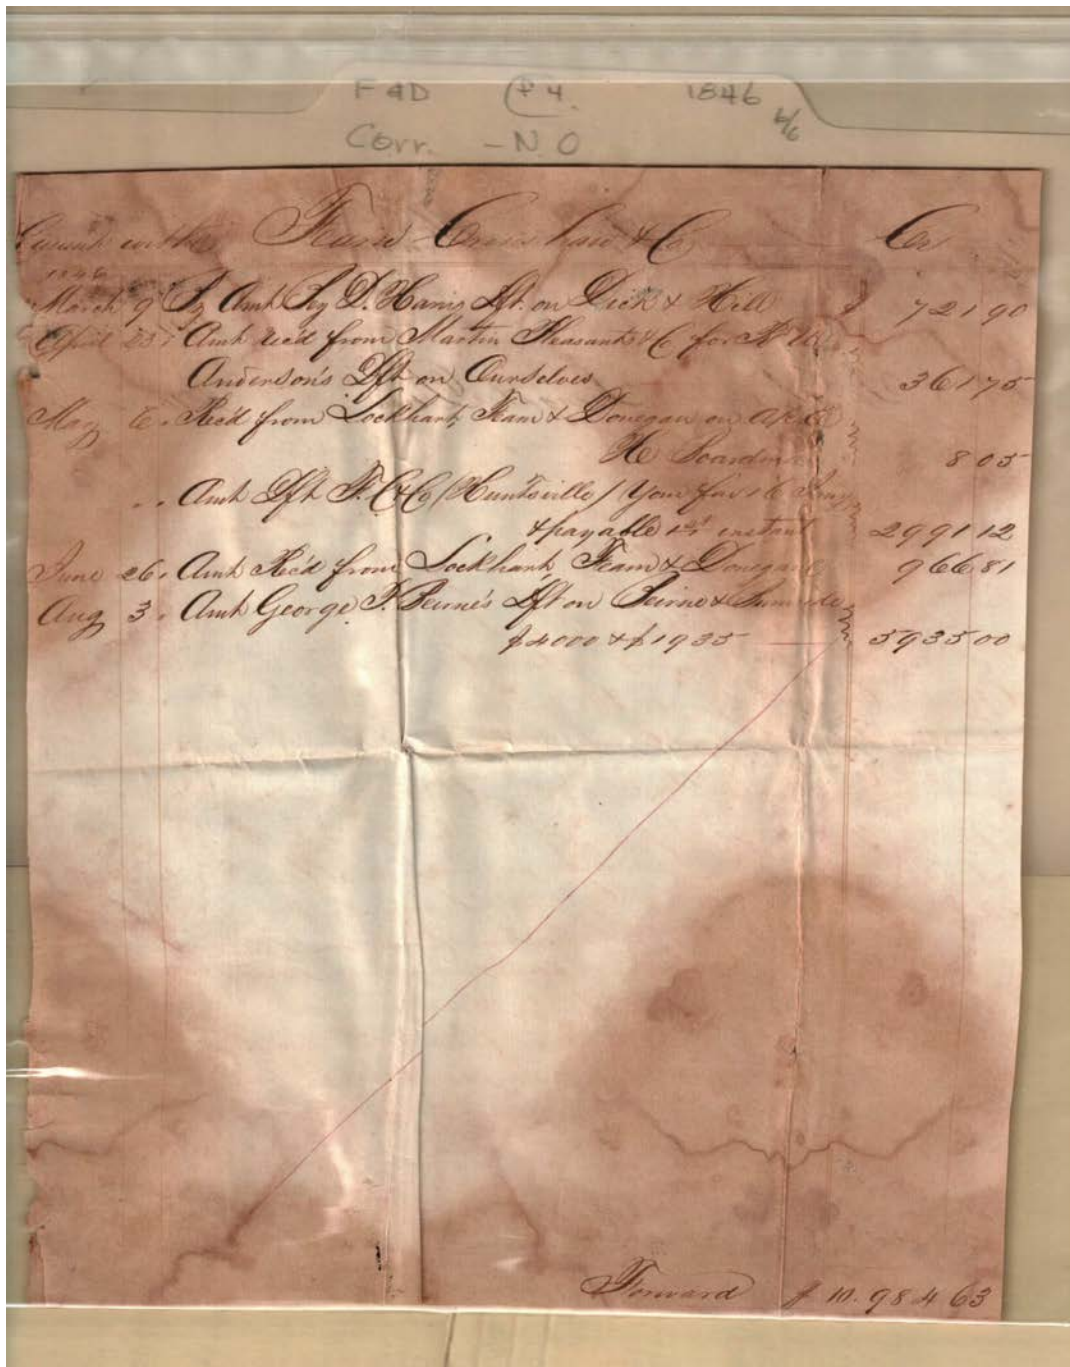 F&D (P 4. 1846 6/6
Corr. - N.O
Current with Fearn Crenshaw & Co Cr
1846
March 9 By Amt Dft. on Dick & Hill $ 721 90
April 23 " Amt rec'd from Martin Pleasants & Co for
Anderson's Dft on Ourselves 361 75
May 6 " Rec'd from Lockhart, Fearn & Donegan on
8 05
" " Amt Dft F. C & Co (Huntsville) Your favr 6
& payable 1st instant 2991 12
June 26 " Amt Rec'd from Lockhart Fearn & Donegan 966 81
Aug 3 " Amt George P. Beirne's Dft on Beirne &
$4000 & $1935 — 5935 00
Forward $ 10.984 63